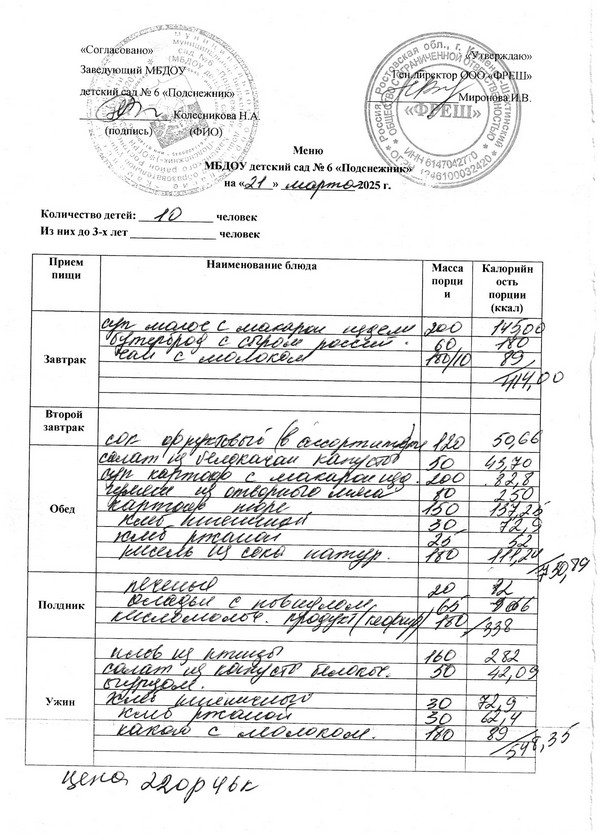 «Согласовано»
Заведующий МБДОУ
детский сад № 6 «Подснежник»
Колесникова Н.А.
(подпись) (ФИО)
«Утверждаю»
Ген.директор ООО «ФРЕШ»
Миронова И.В.
Россия Ростовская обл., г. Каменск-Шахтинский
ОБЩЕСТВО С ОГРАНИЧЕННОЙ ОТВЕТСТВЕННОСТЬЮ
«ФРЕШ»
ИНН 6147042770
Меню
МБДОУ детский сад № 6 «Подснежник»
на «21» марта 2025 г.
Количество детей: 10 человек
Из них до 3-х лет человек
Прием пищи Наименование блюда Масса порции Калорийность порции (ккал)
Завтрак
суп молоч с макарон издели 200 145,00
бутерброд с сыром россий. 60 180
чай с молоком 180/10 89
414,00
Второй завтрак
сок фруктовый (в ассортименте 120 50,66
Обед
салат из белокачан капусты 50 43,70
суп картоф с макарон изд. 200 82,8
из отварного мяса 80 250
картоф пюре 150 137,25
хлеб пшеничной 30 72,9
хлеб ржаной 25 52
кисель из сока натур. 180 111,24
Полдник
печенье 20
оладьи с повидлом 65
кисломолоч. продукт (кефир) 180
338
Ужин
плов из птицы 160 282
салат из капусты белокоч. 50 42,09
огурцом.
хлеб пшеничного 30 72,9
хлеб ржаной 30 62,4
какао с молоком. 180 89
548,35
цена 220р 46к